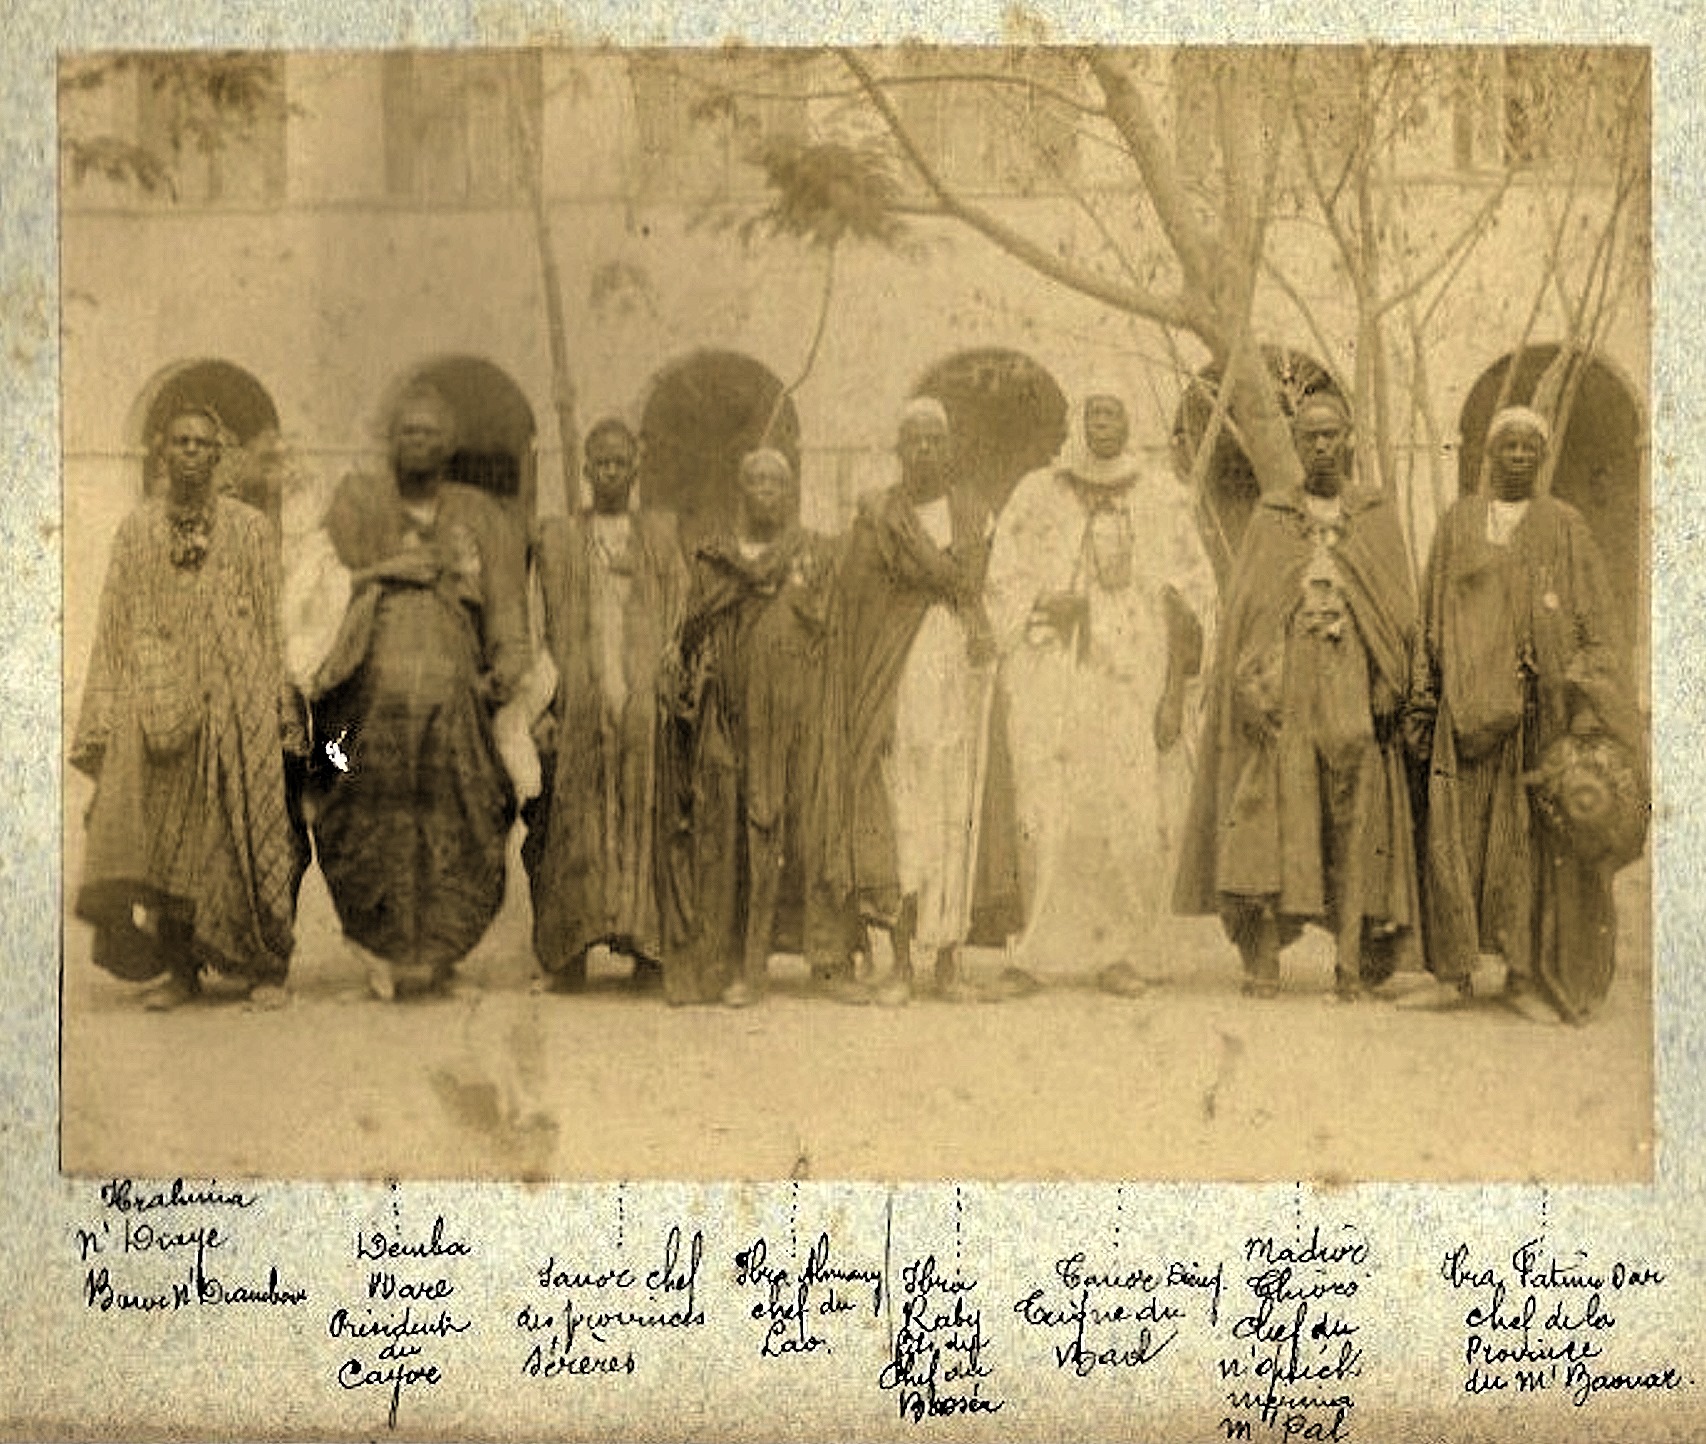 Ibrahima
N'Diaye
Bour N'Diambour
Demba
Ware
Président
du
Cayor
Sanor chef
des provinces
Sérères
Ibra Almamy
chef du
Lao.
Ibra
Raby
Chef du
Tanor Dieng.
Teigne du
Baol
Madior
Thioro
chef du
merina
Ibra Fatim Sar
chef de la
Province
du M'Baouar.